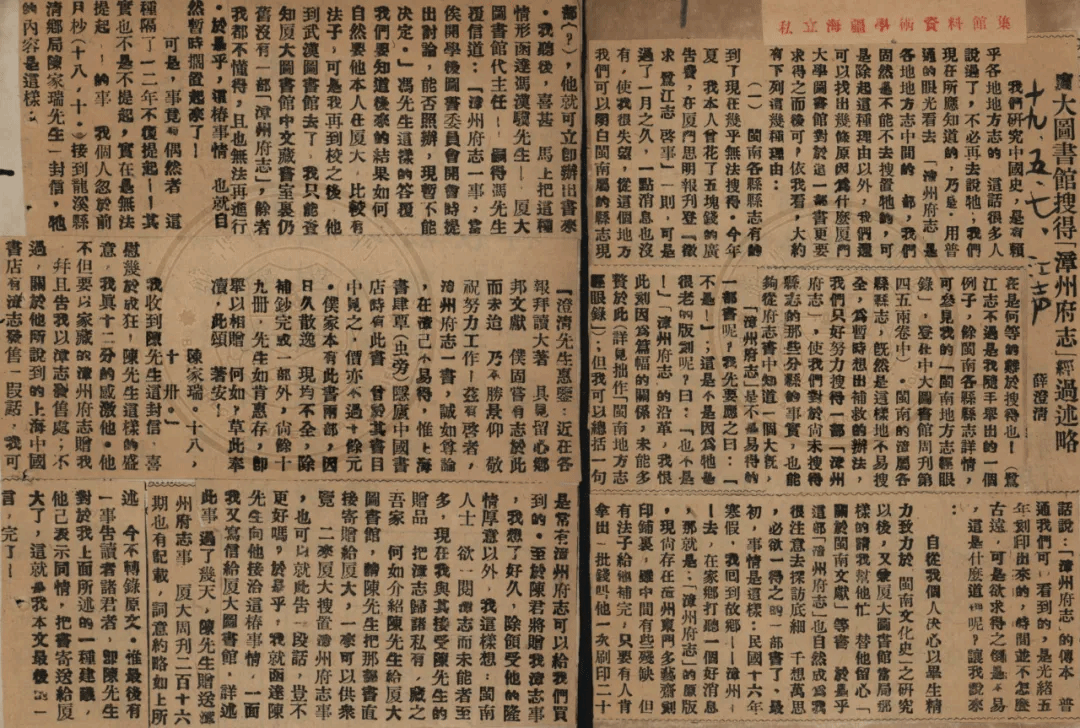 私立海疆學術資料館集
廈大圖書館搜得「漳州府志」經過述略
十九、五、七、江声
薛澄清
我們研究中國史，是有賴
乎各地地方志的，這話很多人
說過了，不必再去說牠；我們
現在所應知道的，乃是。用普
通的眼光看去，「漳州府志」是
各地地方志中間的一部，我們
固然是不能不去搜置牠的，可
是除却這種理由以外，我們還
可以找出幾條原因爲什麼厦門
大學圖書館對於這一部書更要
求得之而後可，依我看，大約
有下列這幾種理由：
（一）閩南各縣縣志有的
到了現在幾乎無法搜得。今年
夏，我本人曾花了五塊錢的廣
告費，在厦門思明報刊登『徵
求鷺江志啓事』一則，可是
過了一月之久，一點消息也沒
有，使我很失望，從這個地方
我們可以明白閩南屬的縣志現
在是何等的難於搜得也！（鷺
江志不過是我隨手舉出的一個
例子，餘閩南各縣縣志詳情，
可參見我的「閩南地方志經眼
錄」，登在中大圖書館周刊第
四五兩卷中）。閩南的漳屬各
縣縣志，旣然是這樣地不易搜
全，爲暫時想出補救的辦法，
我們只好努力搜得一部「漳州
府志」，使我們對於尙未搜得
縣志的那些分縣的事實，也能
夠從府志書中知道一個大槪，
「漳州府志」是不是易得的
一部書呢？我先要應之曰：「
不是！」；這是不是因爲牠是
很老的版刻呢？曰：「也不是
！」「漳州府志」的沿革，我恨
此刻因爲篇幅的關係，未能多
贅於此（詳見拙作「閩南地方志
經眼錄」；但我可以總括一句
話說：「漳州府志」的傳本，普
通我們可一看到的，是光緒五
年刻印出來的，時間並不怎麽
古遠，可是欲求得之，倒是不易
，這是什麽道理呢？讓我說來
自從我個人決心以畢生精
力致力於「閩南文化史」之研究
以後，又兼厦大圖書館當局那
樣的請我幫他忙，替他留心「
關於閩南文獻」等書，於是乎
這部「漳州府志」也自然成爲我
很注意去探訪底細，千想萬思
，必欲一得之的一部書了、最
初，事情是這樣：民國十六年
寒假，我回到故鄉——漳州—
—去，在家鄉打聽一個好消息
，那就是：「漳州府志」的原版
，現尙存在漳州東門多藝齋刻
印鋪裏，雖中間有些殘缺，但
有法子給牠補完，只要有人肯
拿出一批錢叫他一次刷印二十
部（？），他就可立卽辦出書來
。我聽後，喜甚，馬上把這種
情形函達馮漢驥先生——厦大
圖書館代主任——嗣得馮先生
覆信道：「漳州府志一事，當
俟開學後圖書委員會開會時提
出討論，能否照辦，現暫不能
決定。」馮先生這樣的答覆
我們要知道後來的結果如何，
自然要他本人在厦大，比較有
法子，可是我再到校之後，他
到武漢圖書館去了，我只能查
知厦大圖書館中文藏書室裏仍
舊沒有一部「漳州府志」，餘者
我都不懂得，且也無法再進行
。於是乎，這樁事情，也就自
然暫時擱置起來了！
可是，事竟有偶然者，這
種隔了一二年不復提起——其
實也不是不提起，實在是無法
提起——的事，我個人忽於前
月杪（十八，十。）接到龍溪縣
清鄉局陳家瑞先生一封信，牠
的內容是這樣：
『澄清先生惠鑒：近在各
報拜讀大著，具見留心鄉
邦文獻，僕固嘗有志於此
而未迨，乃不勝景仰，敬
祝努力工作！茲有啓者，
漳州府志一書，誠如尊論
，在漳已不易得，惟上海
書肆草（虫旁）隱廬中國書
店時有此書，曾於其書目
中見之，價亦不過十餘元
。僕家本有此書兩部，因
日久散逸，現均不全，除
補鈔完成一部外，尙餘十
九冊，先生如肯惠存，卽
舉以相贈，何如？草此奉
瀆，此頌，著安！
陳家瑞。十八，
十，卅。』
我收到陳先生這封信，喜
慰幾於成狂，陳先生這樣的盛
意，我眞十二分的感激他。他
不但要以家藏的漳州府志贈我
，幷且告我以漳志發售處；不
過，關於他所說到的上海中國
書店有漳志發售一段話，我可
是常有漳州府志可以給我們買
到的。至於陳君將贈我漳志事
，我想了好久，除領受他的隆
情厚意以外，我這樣想：閩南
人士，欲一閱漳志而未能者至
多，現在我與其接受陳先生的
贈品，把漳志歸諸私有，藏之
吾家，何如介紹陳先生給厦大
圖書館，請陳先生把那部書直
接寄贈給厦大，一來可以供衆
覽，二來厦大搜置漳州府志事
，也可以就此告一段落，豈不
更好嗎？於是乎，我函陳達陳
先生向他接洽這樁事情，一面
我又寫信給厦大圖書館，詳述
此事，過了幾天，陳先生贈送漳
州府志事，厦大周刊二百十六
期也有記載，詞意約略如上所
述，今不轉錄原文。惟最後有
一事告讀者諸君者，卽陳先生
對於我上面所述的一種建議，
他已表示同情，把書寄送給厦
大了，這就是我本文最後的一
言，完了！